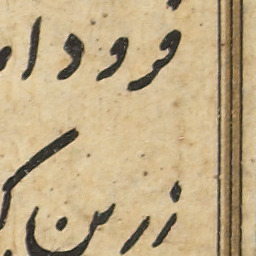 فرود ا
زرین